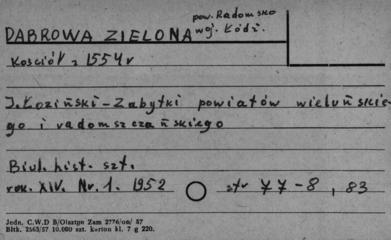 pow. Radomsko
DĄBROWA ZIELONA woj. Łódź.
Kościół z 1554 r
J. Łoziński - Zabytki powiatów wieluńskie-
go i radomszczańskiego
Biul. hist. szt.
rok. XIV. Nr. 1. 1952 str 77-8, 83
Jedn. C.W.D B/Olsztyn Zam 2776/oo/ 57
Bltk. 2563/57 10.000 szt. karton kl. 7 g 220.